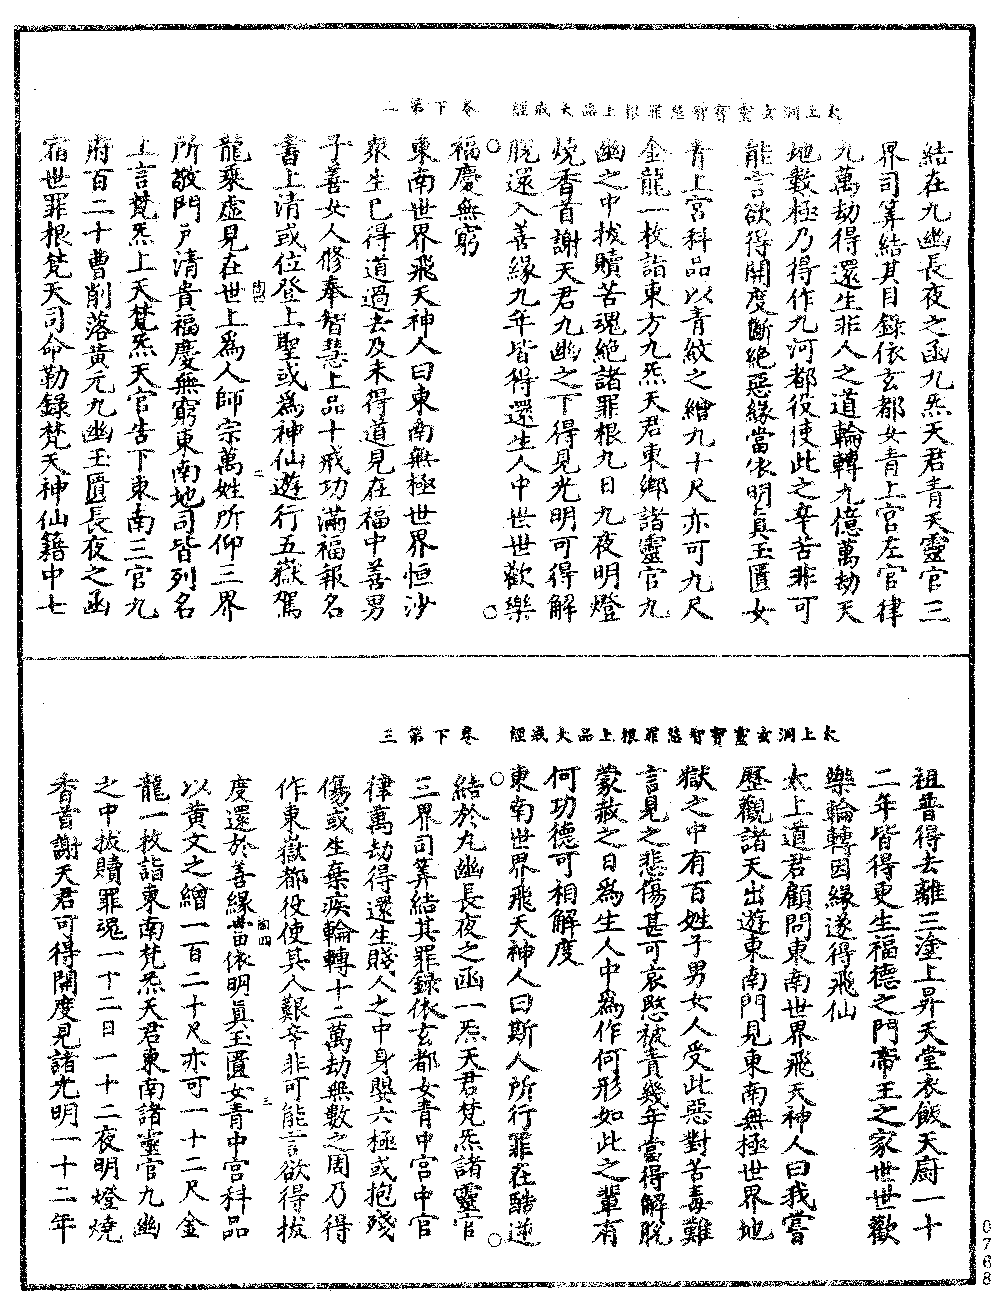 太上洞玄靈寶智慧罪根上品大戒經　卷下第二
結在九幽長夜之函九炁天君青天靈官三
界司筭結其目錄依玄都女青上宮左官律
九萬劫得還生非人之道輪轉九億萬劫天
地數極乃得作九河都役使此之辛苦非可
能言欲得開度斷絕惡緣當依明真玉匱女
青上宮科品以青紋之繒九十尺亦可九尺
金龍一枚詣東方九炁天君東鄉諸靈官九
幽之中拔贖苦魂絕諸罪根九日九夜明燈
燒香首謝天君九幽之下得見光明可得解
脫還入善緣九年皆得還生人中世世歡樂
福慶無窮
東南世界飛天神人曰東南無極世界恒沙
衆生已得道過去及未得道見在福中善男
子善女人修奉智慧上品十戒功滿福報名
書上清或位登上聖或為神仙遊行五嶽駕
龍乘虛見在世上為人師宗萬姓所仰三界
所敬門戶清貴福慶無窮東南地司皆列名
上言梵炁上天梵炁天官告下東南三官九
府百二十曹削落黃元九幽玉匱長夜之函
宿世罪根梵天司命勒錄梵天神仙籍中七
太上洞玄靈寶智慧罪根上品大戒經　卷下第三
祖普得去離三塗上昇天堂衣飯天厨一十
二年皆得更生福德之門帝王之家世世歡
樂輪轉因緣遂得飛仙
太上道君顧問東南世界飛天神人曰我嘗
歷觀諸天出遊東南門見東南無極世界地
獄之中有百姓子男女人受此惡對苦毒難
言見之悲傷甚可哀愍被責幾年當得解脫
蒙赦之日為生人中為作何形如此之輩有
何功德可相解度
東南世界飛天神人曰斯人所行罪在酷逆
結於九幽長夜之函一炁天君梵炁諸靈官
三界司筭結其罪錄依玄都女青中宮中官
律萬劫得還生賤人之中身嬰六極或抱殘
傷或生棄疾輪轉十二萬劫無數之周乃得
作東嶽都役使其人艱辛非可能言欲得拔
度還於善緣當依明真玉匱女青中宮科品
以黃文之繒一百二十尺亦可一十二尺金
龍一枚詣東南梵炁天君東南諸靈官九幽
之中拔贖罪魂一十二日一十二夜明燈燒
香首謝天君可得開度見諸光明一十二年
0768